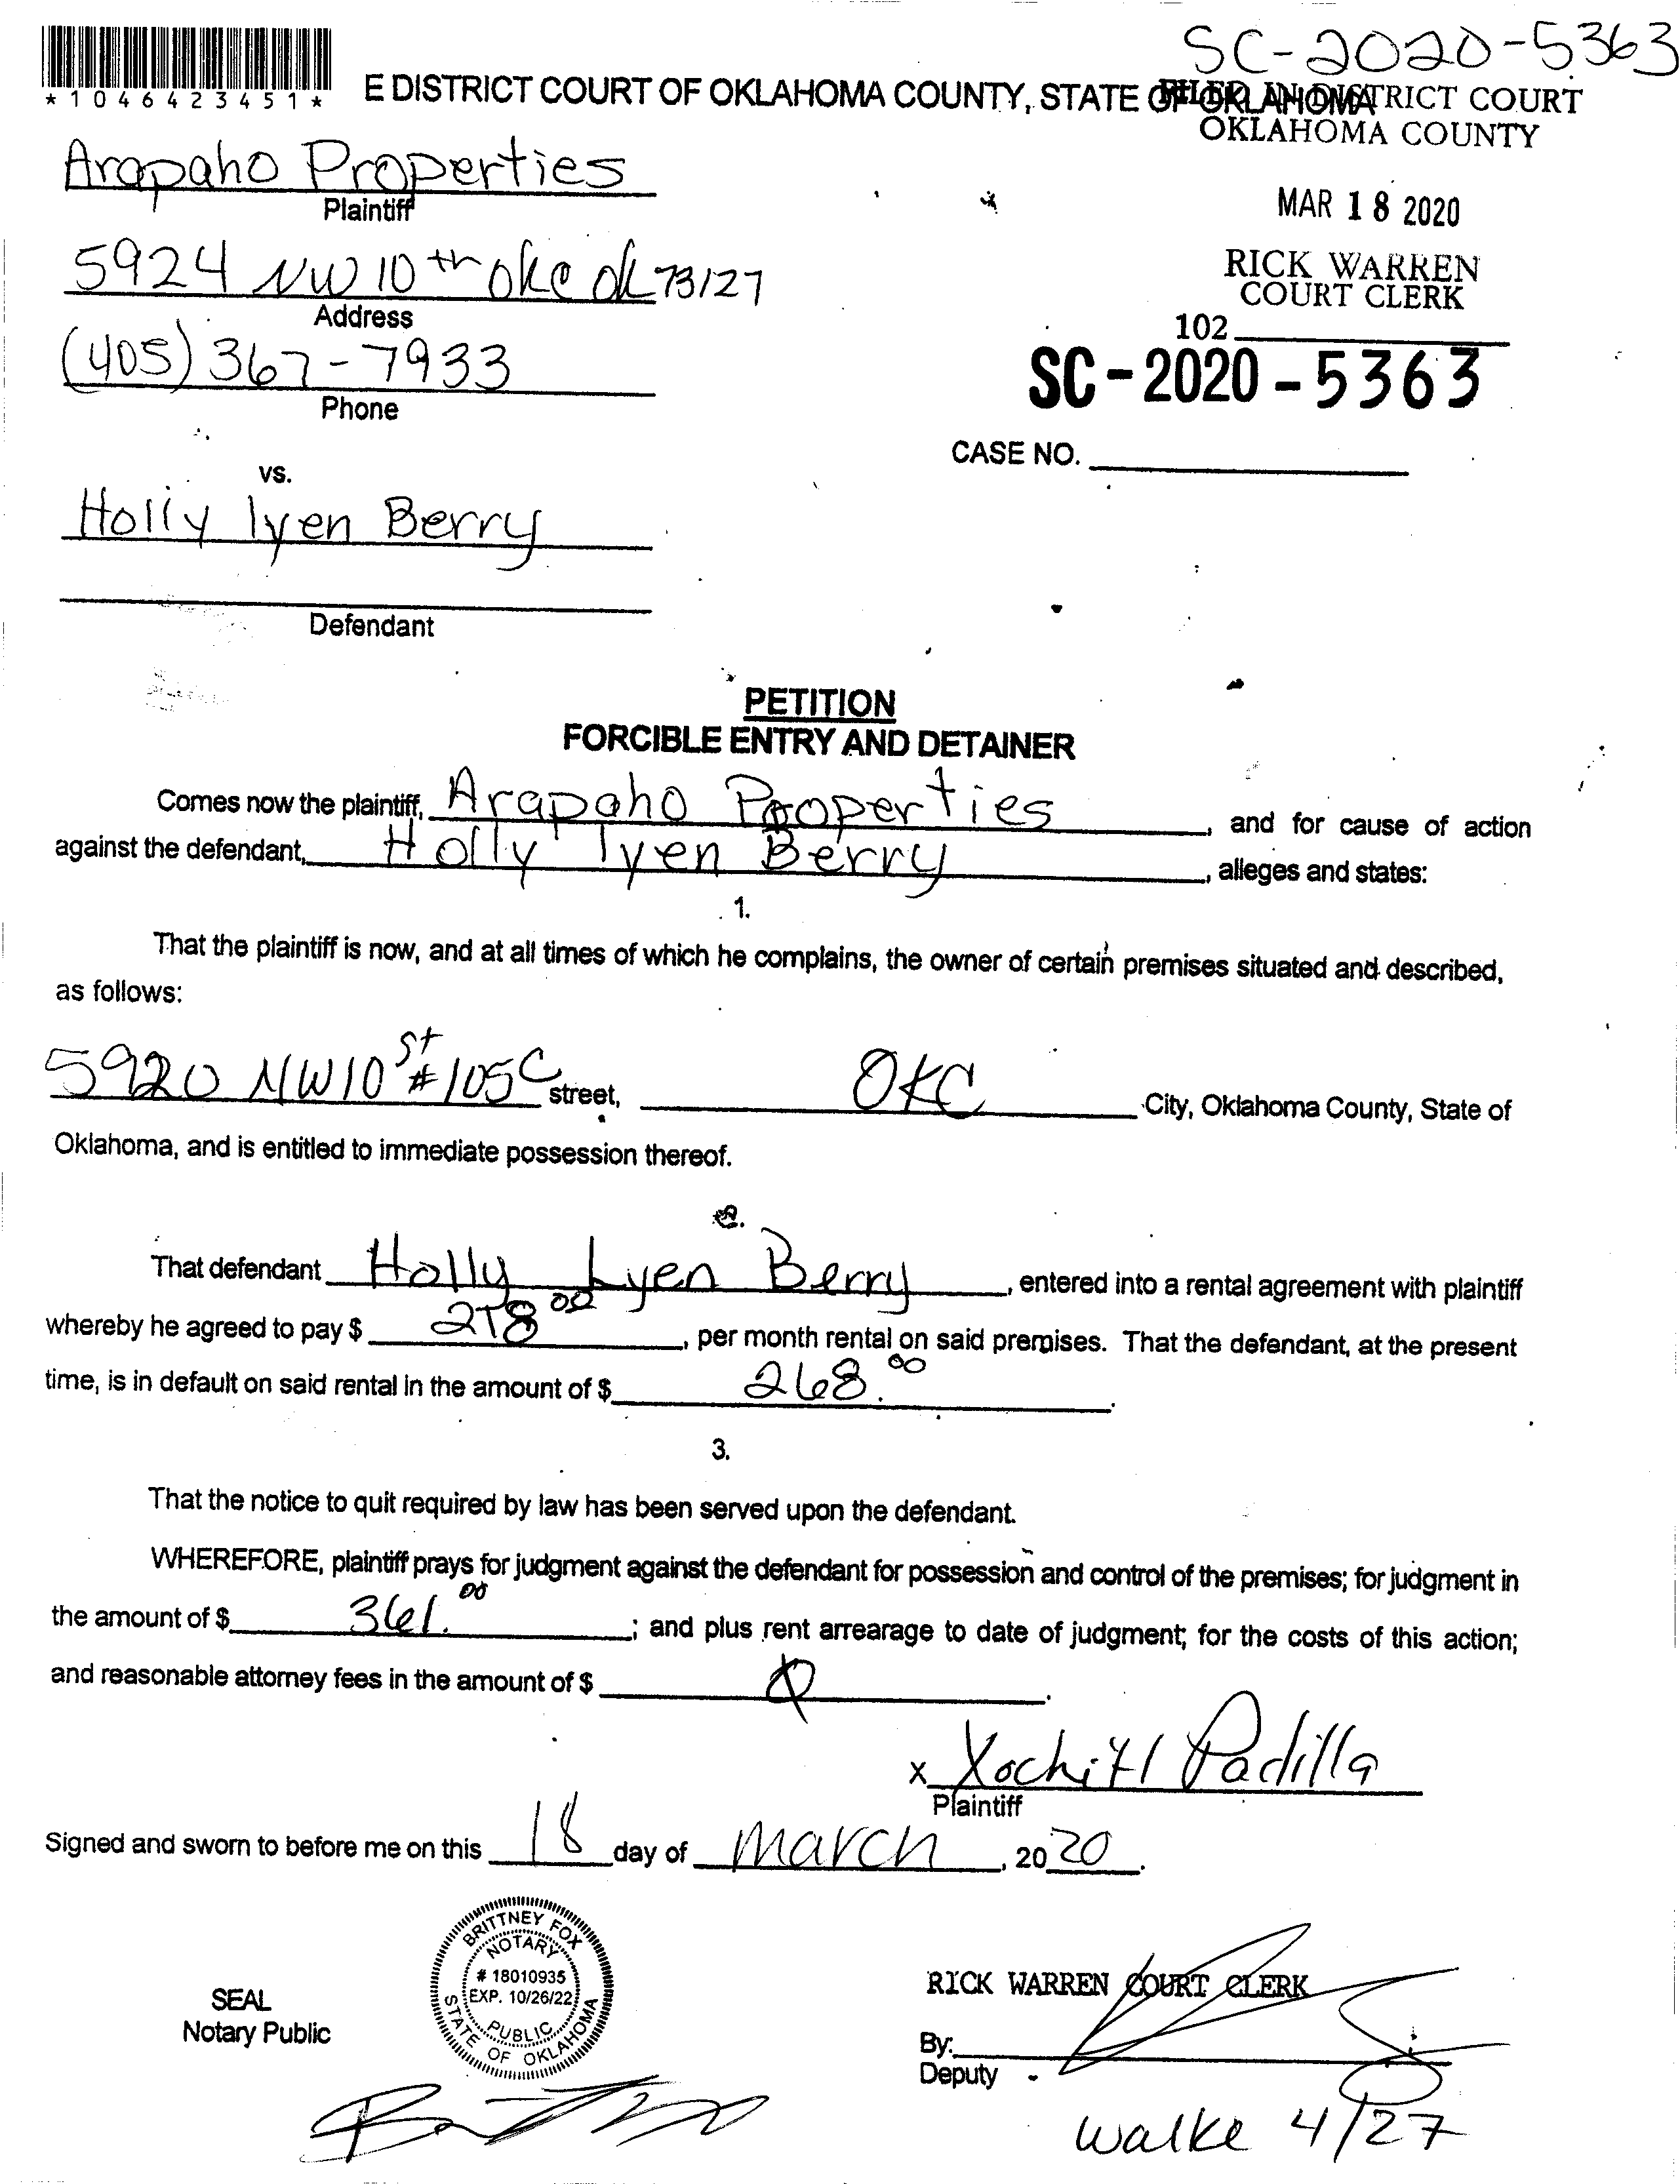 SC-2020-5363
*1046423451*
E DISTRICT COURT OF OKLAHOMA COUNTY, STATE OF OKLAHOMA
FILED IN DISTRICT COURT
OKLAHOMA COUNTY
Arapaho Properties
Plaintiff
MAR 18 2020
5924 NW 10th okc ok 73127
Address
RICK WARREN
COURT CLERK
102
(405) 367-7933
Phone
SC-2020-5363
CASE NO.
vs.
Holly lyen Berry
Defendant
PETITION
FORCIBLE ENTRY AND DETAINER
Comes now the plaintiff, Arapaho Properties, and for cause of action
against the defendant, Holly lyen Berry, alleges and states:
1.
That the plaintiff is now, and at all times of which he complains, the owner of certain premises situated and described,
as follows:
5920 NW 10 St #105C street, OKC City, Oklahoma County, State of
Oklahoma, and is entitled to immediate possession thereof.
2.
That defendant Holly Lyen Berry, entered into a rental agreement with plaintiff
whereby he agreed to pay $ 00, per month rental on said premises. That the defendant, at the present
time, is in default on said rental in the amount of $ 268.00.
3.
That the notice to quit required by law has been served upon the defendant.
WHEREFORE, plaintiff prays for judgment against the defendant for possession and control of the premises; for judgment in
the amount of $ 361.00; and plus rent arrearage to date of judgment; for the costs of this action;
and reasonable attorney fees in the amount of $
x Xochitl Padilla
Plaintiff
Signed and sworn to before me on this 18 day of March, 2020.
BRITTNEY FOX
NOTARY
# 18010935
EXP. 10/26/22
PUBLIC
STATE OF OKLAHOMA
SEAL
Notary Public
RICK WARREN COURT CLERK
By:
Deputy
Walke 4/27